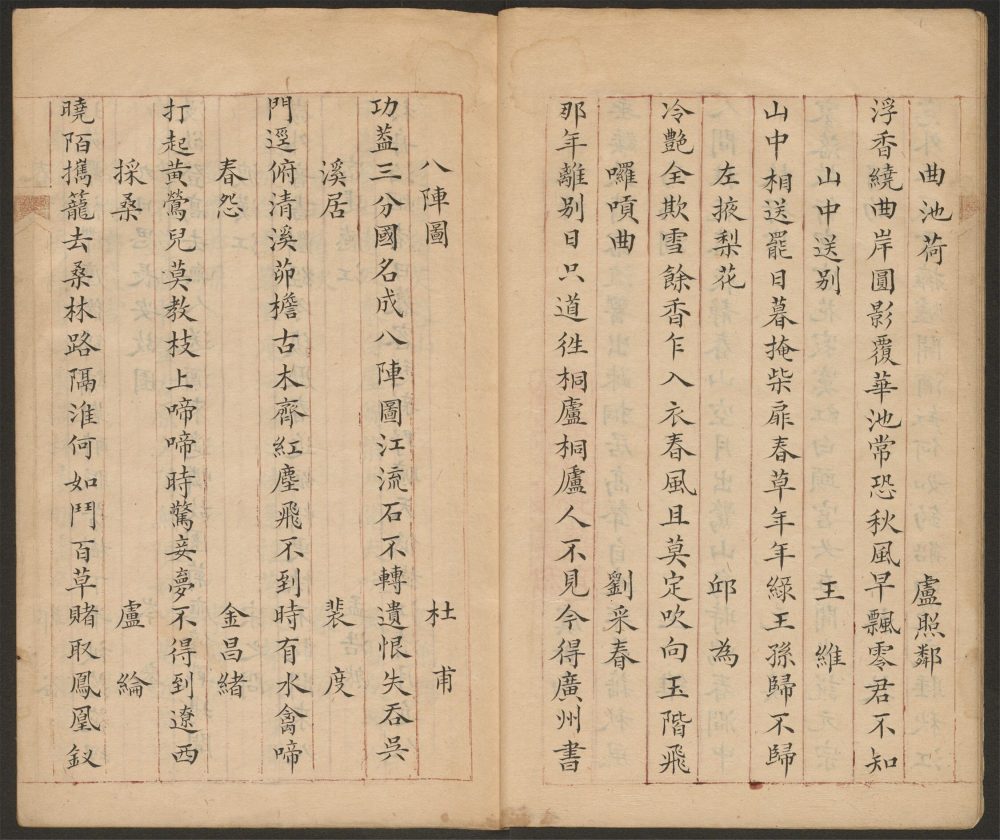 曲池荷 盧照鄰
浮香繞曲岸圓影覆華池常恐秋風早飄零君不知
山中送别 王維
山中相送罷日暮掩柴扉春草年年緑王孫歸不歸
左掖梨花 邱為
冷艷全欺雪餘香乍入衣春風且莫定吹向玉階飛
囉嗊曲 劉采春
那年離别日只道徃桐廬桐廬人不見今得廣州書
八陣圖 杜甫
功葢三分國名成八陣圖江流石不轉遺恨失吞吳
溪居 裴度
門逕俯清溪茆檐古木齊紅塵飛不到時有水禽啼
春怨 金昌緒
打起黄鶯兒莫教枝上啼啼時驚妾夢不得到遼西
採桑 盧綸
曉陌攜籠去桑林路隔淮何如鬥百草賭取鳳凰釵